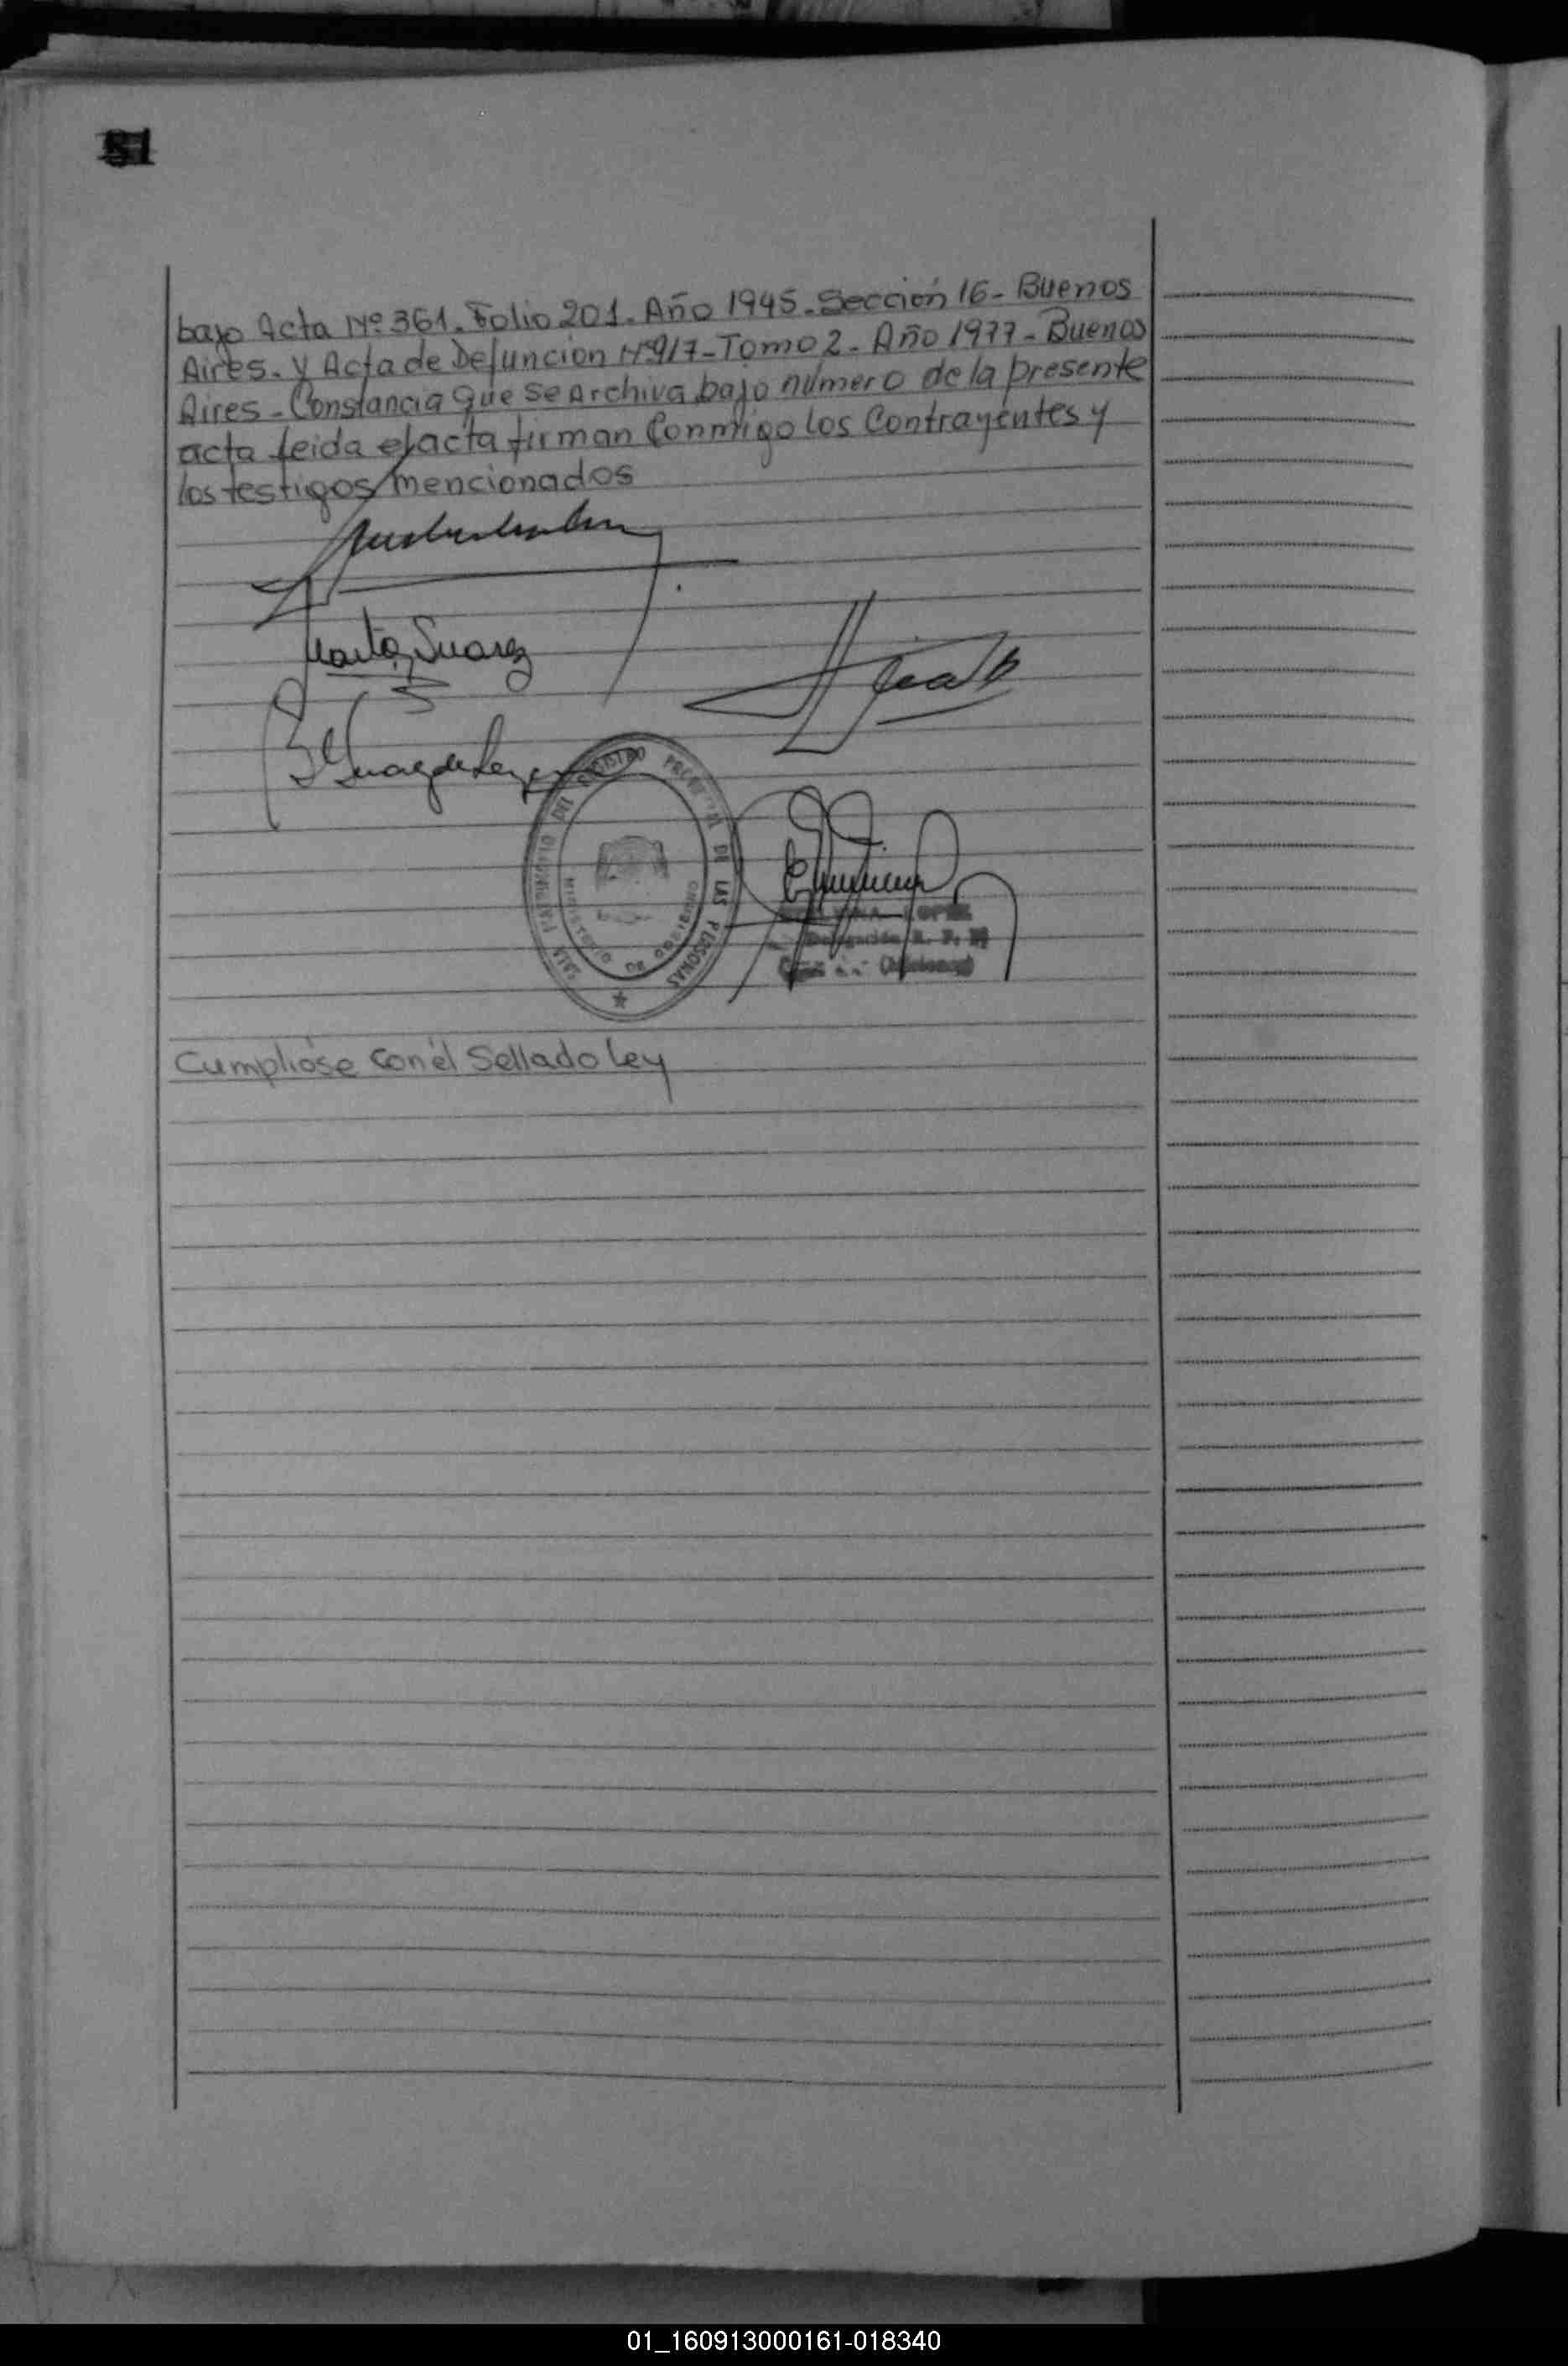 51
bajo Acta Nº 361. Folio 201. Año 1945. Sección 16- Buenos
Aires. Y Acta de Defuncion Nº917-Tomo 2- Año 1977- Buenos
Aires- Constancia que se Archiva bajo número de la presente
acta leida el acta firman Conmigo los Contrayentes y
los testigos mencionados
Marta Suarez
REGISTRO PROVINCIAL DE LAS PERSONAS
MINISTERIO DE GOBIERNO
LOPEZ
Delegación R. P. P.
(Misiones)
Cumplióse con el Sellado Ley
01_160913000161-018340